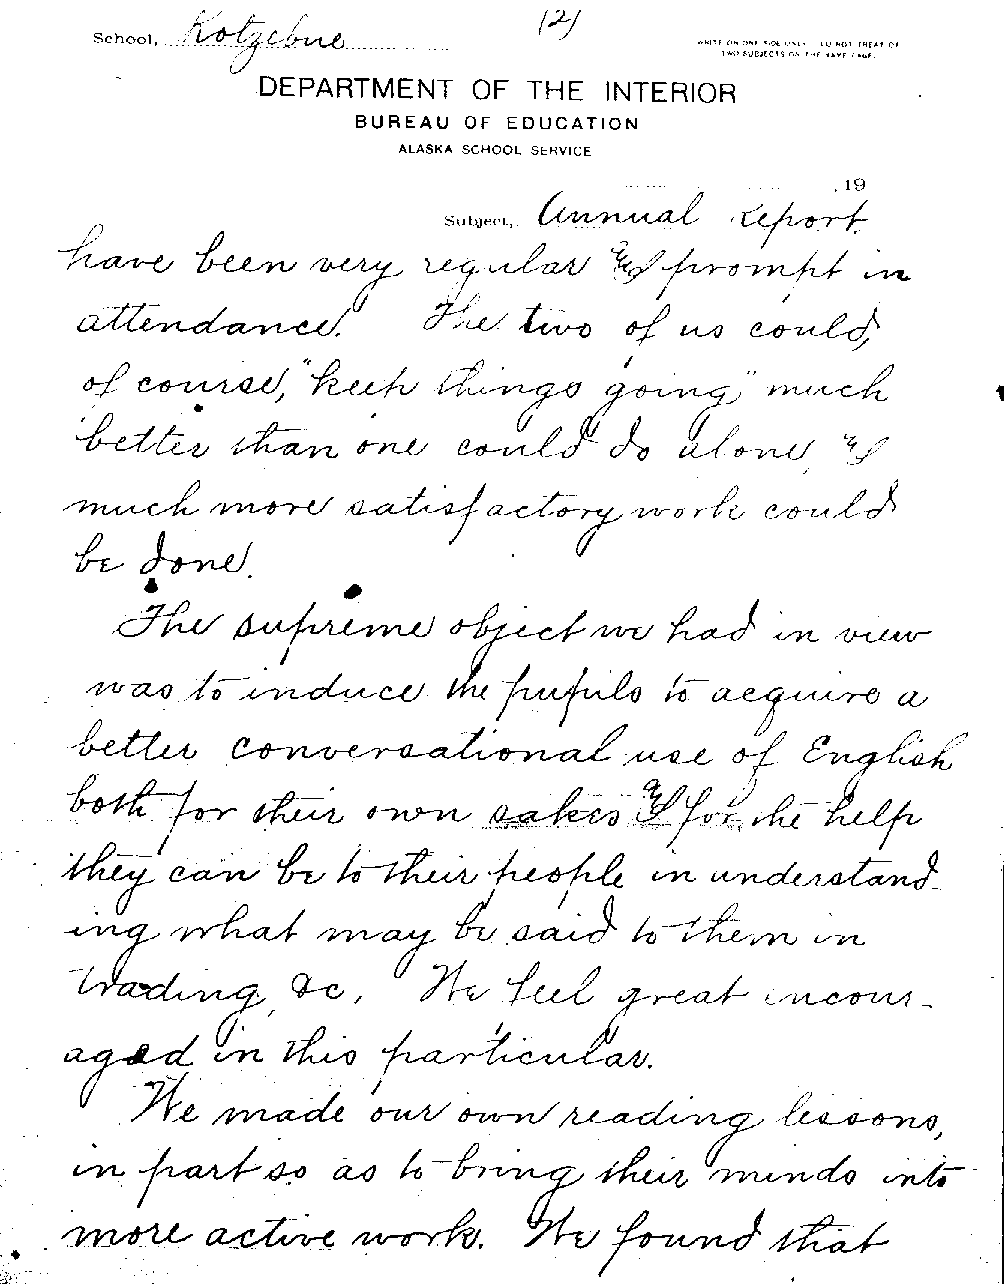 (2)
School, Kotzebue
WRITE ON ONE SIDE ONLY. DO NOT TREAT OF
TWO SUBJECTS ON THE SAME PAGE.
DEPARTMENT OF THE INTERIOR
BUREAU OF EDUCATION
ALASKA SCHOOL SERVICE
, 19
Subject, Annual Report
have been very regular & prompt in
attendance. The two of us could,
of course, "keep things going" much
better than one could do alone, &
much more satisfactory work could
be done.
The supreme object we had in view
was to induce the pupils to acquire a
better conversational use of English
both for their own sakes & for the help
they can be to their people in understand-
ing what may be said to them in
trading, &c. We feel great encour-
aged in this particular.
We made our own reading lessons,
in part so as to bring their minds into
more active work. We found that